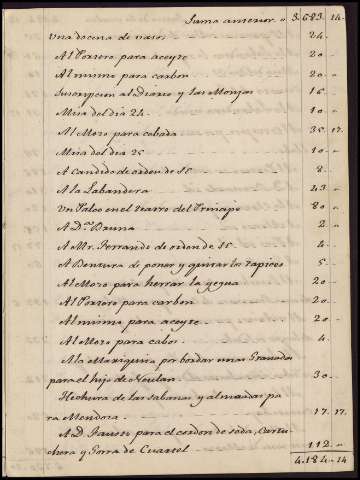 Suma anterior.. 3.683. 14.
Una docena de vasos 24.
Al Portero para aceyte 20..
Al mismo para carbon 20..
Suscripcion al Diario y las Monjas 16.
Misa del dia 24. 10..
Al Mozo para cebada 35. 17.
Misa del dia 25 10..
A Candido de orden de SE. 8.
A la Labandera 43..
Un Palco en el teatro del Principe 80..
A D.ª Bruna 2.
A Mr. Ferrando de orden de SE. 4.
A Bentura de poner y quitar los tapices 5.
Al Mozo para herrar la yegua 20..
Al Portero para carbon 20..
Al mismo para aceyte. 20..
Al Mozo para cabos. 4.
A la Mariquita por bordar unos Granados
para el hijo de 30..
Hechura de las sabanas y almoadas pa
ra Mendoza. 17. 17.
A D. para el cordon de seda, Cartu
chera y Gorra de Cuartel 112..
4.184..14